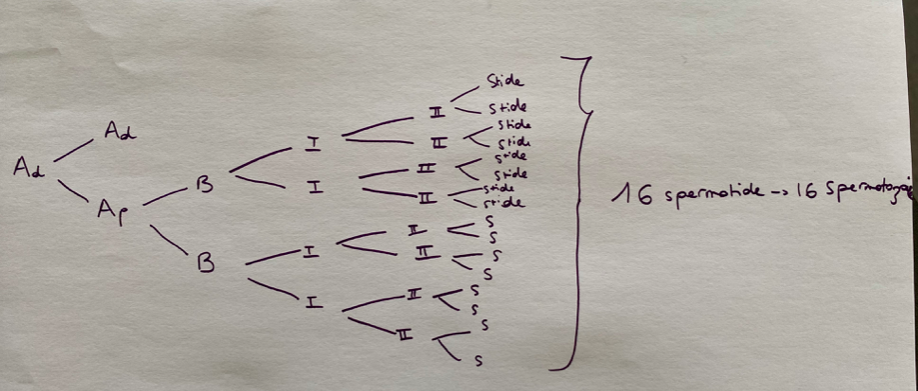 Stide
Ad
II
stide
stide
I
II
stide
stide
Ad
B
I
II
stide
stide
II
stide
16 spermatide -> 16 Spermatozoi
Ap
I
II
S
S
B
II
S
S
I
II
S
S
II
S
S